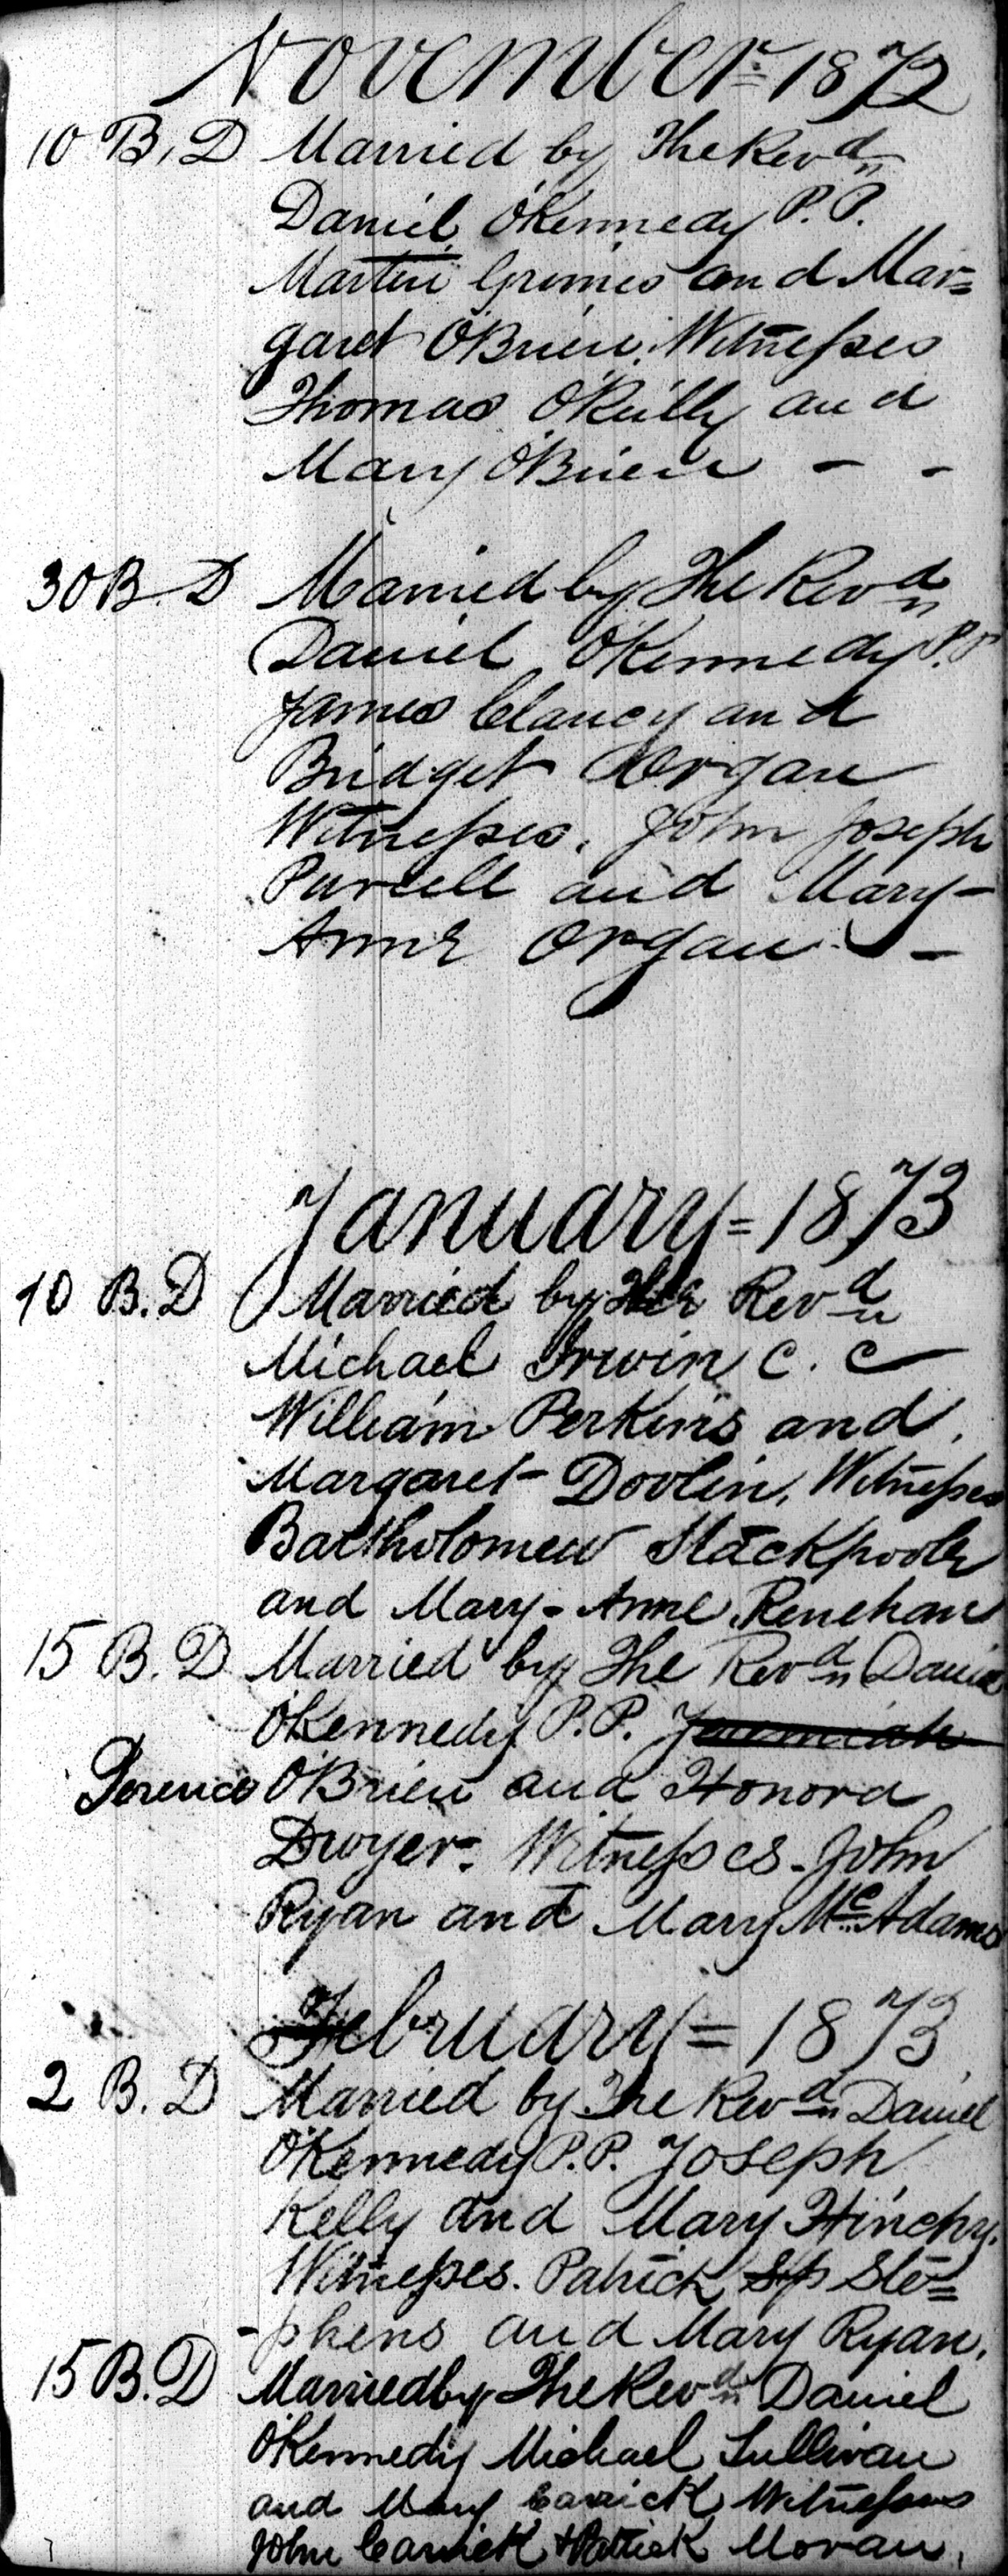 November = 1872
10 B. D Married by The Revd
Daniel O'Kennedy P. P.
Martin Grimes and Mar=
garet O'Brien. Witnesses
Thomas O'Reilly and
Mary O'Brien - -
30 B. D Married by The Revd
Daniel O'Kennedy P. P
James Clancy and
Bridget Organ
Witnesses. John Joseph
Purcell and Mary-
Anne Organ -
January = 1873
10 B. D Married by The Revd
Michael Irwin C. C
William Perkins and
Margaret Doolin. Witnesses
Bartholomew Stackpoole
and Mary-Anne Renehan
15 B. D Married by The Revd Daniel
O'Kennedy P. P. Jeremiah
Terence O'Brien and Honora
Dwyer. Witnesses. John
Ryan and Mary McAdams
February = 1873
2 B. D Married by The Revd Daniel
O'Kennedy P. P. Joseph
Kelly and Mary Hinchy.
Witnesses. Patrick Ste=
-phens and Mary Ryan.
15 B. D Married by The Revd Daniel
O'Kennedy Michael Sullivan
and Mary Carrick Witnesses
John Carrick + Patrick Moran.